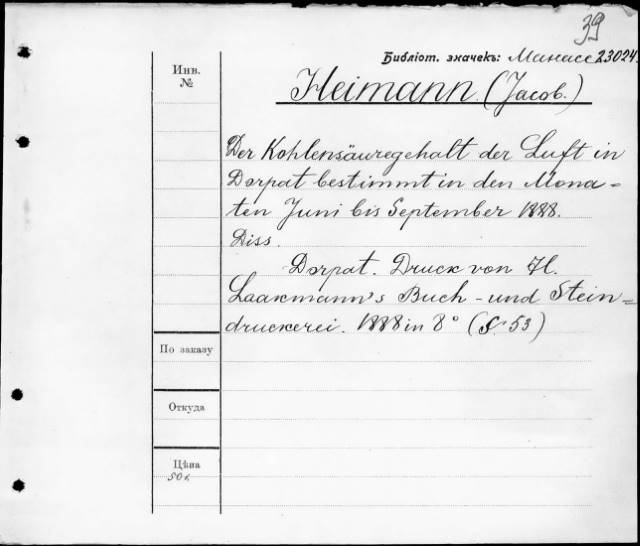 39
Библіот. значекъ: Манасс 23024.
Инв.
№
Heimann (Jacob.)
Der Kohlensäuregehalt der Luft in
Dorpat bestimmt in den Mona-
ten Juni bis September 1888.
Diss.
Dorpat. Druck von H.
Laakmann's Buch- und Stein-
druckerei. 1888 in 8° (S. 53)
По заказу
Откуда
Цѣна
50 к.